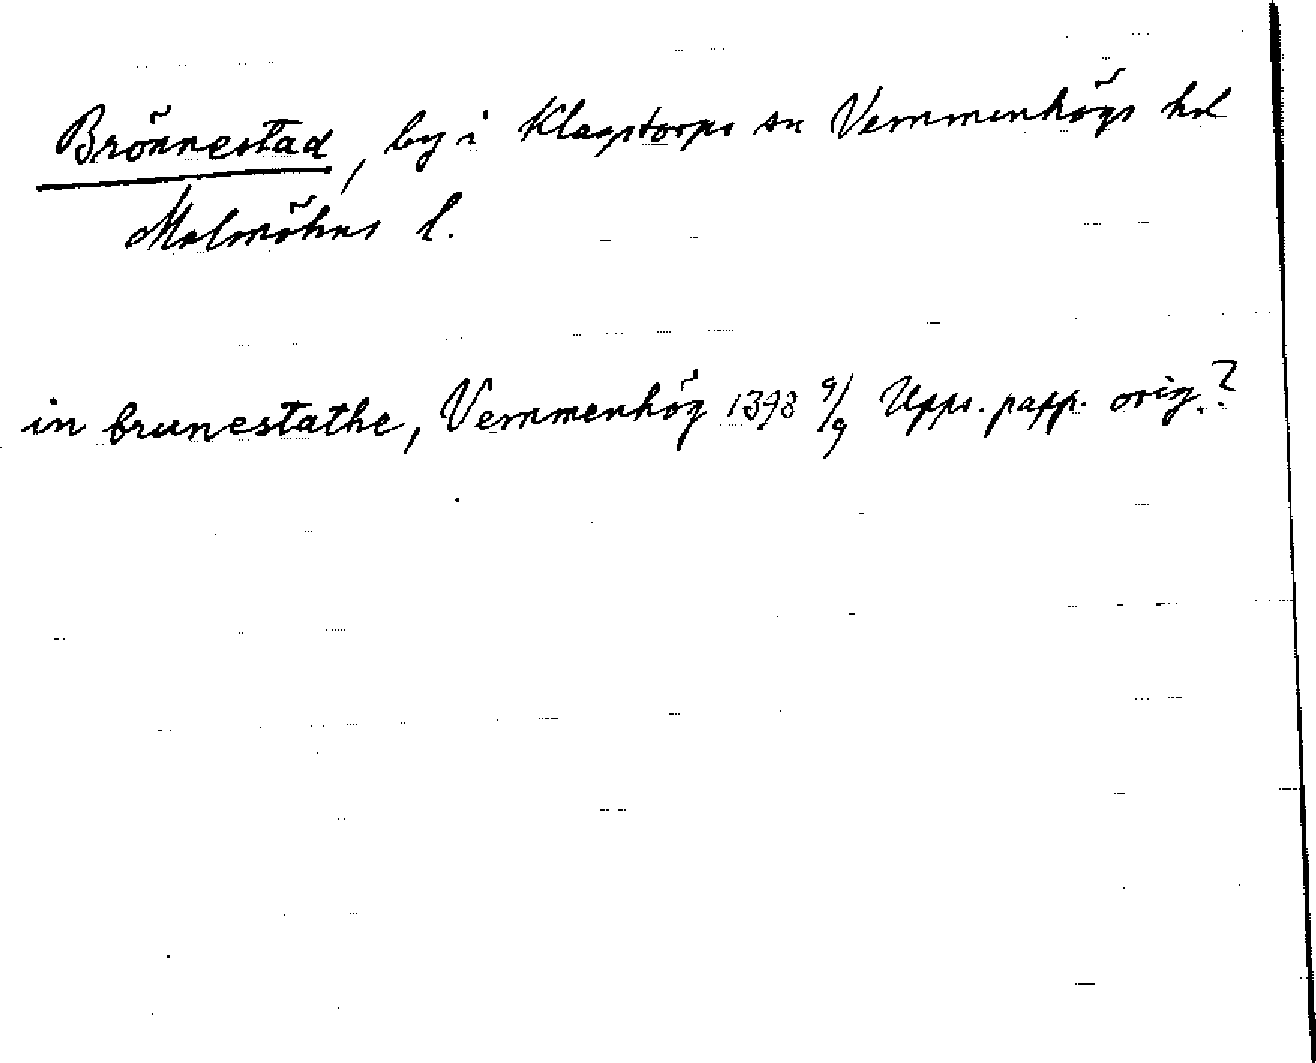 Brönnestad, by i Klagstorps sn Vemmenhögs hd
Malmöhus l.
in brunestathe, Vemmenhög 1398 9/9 Upps. papp. orig.?